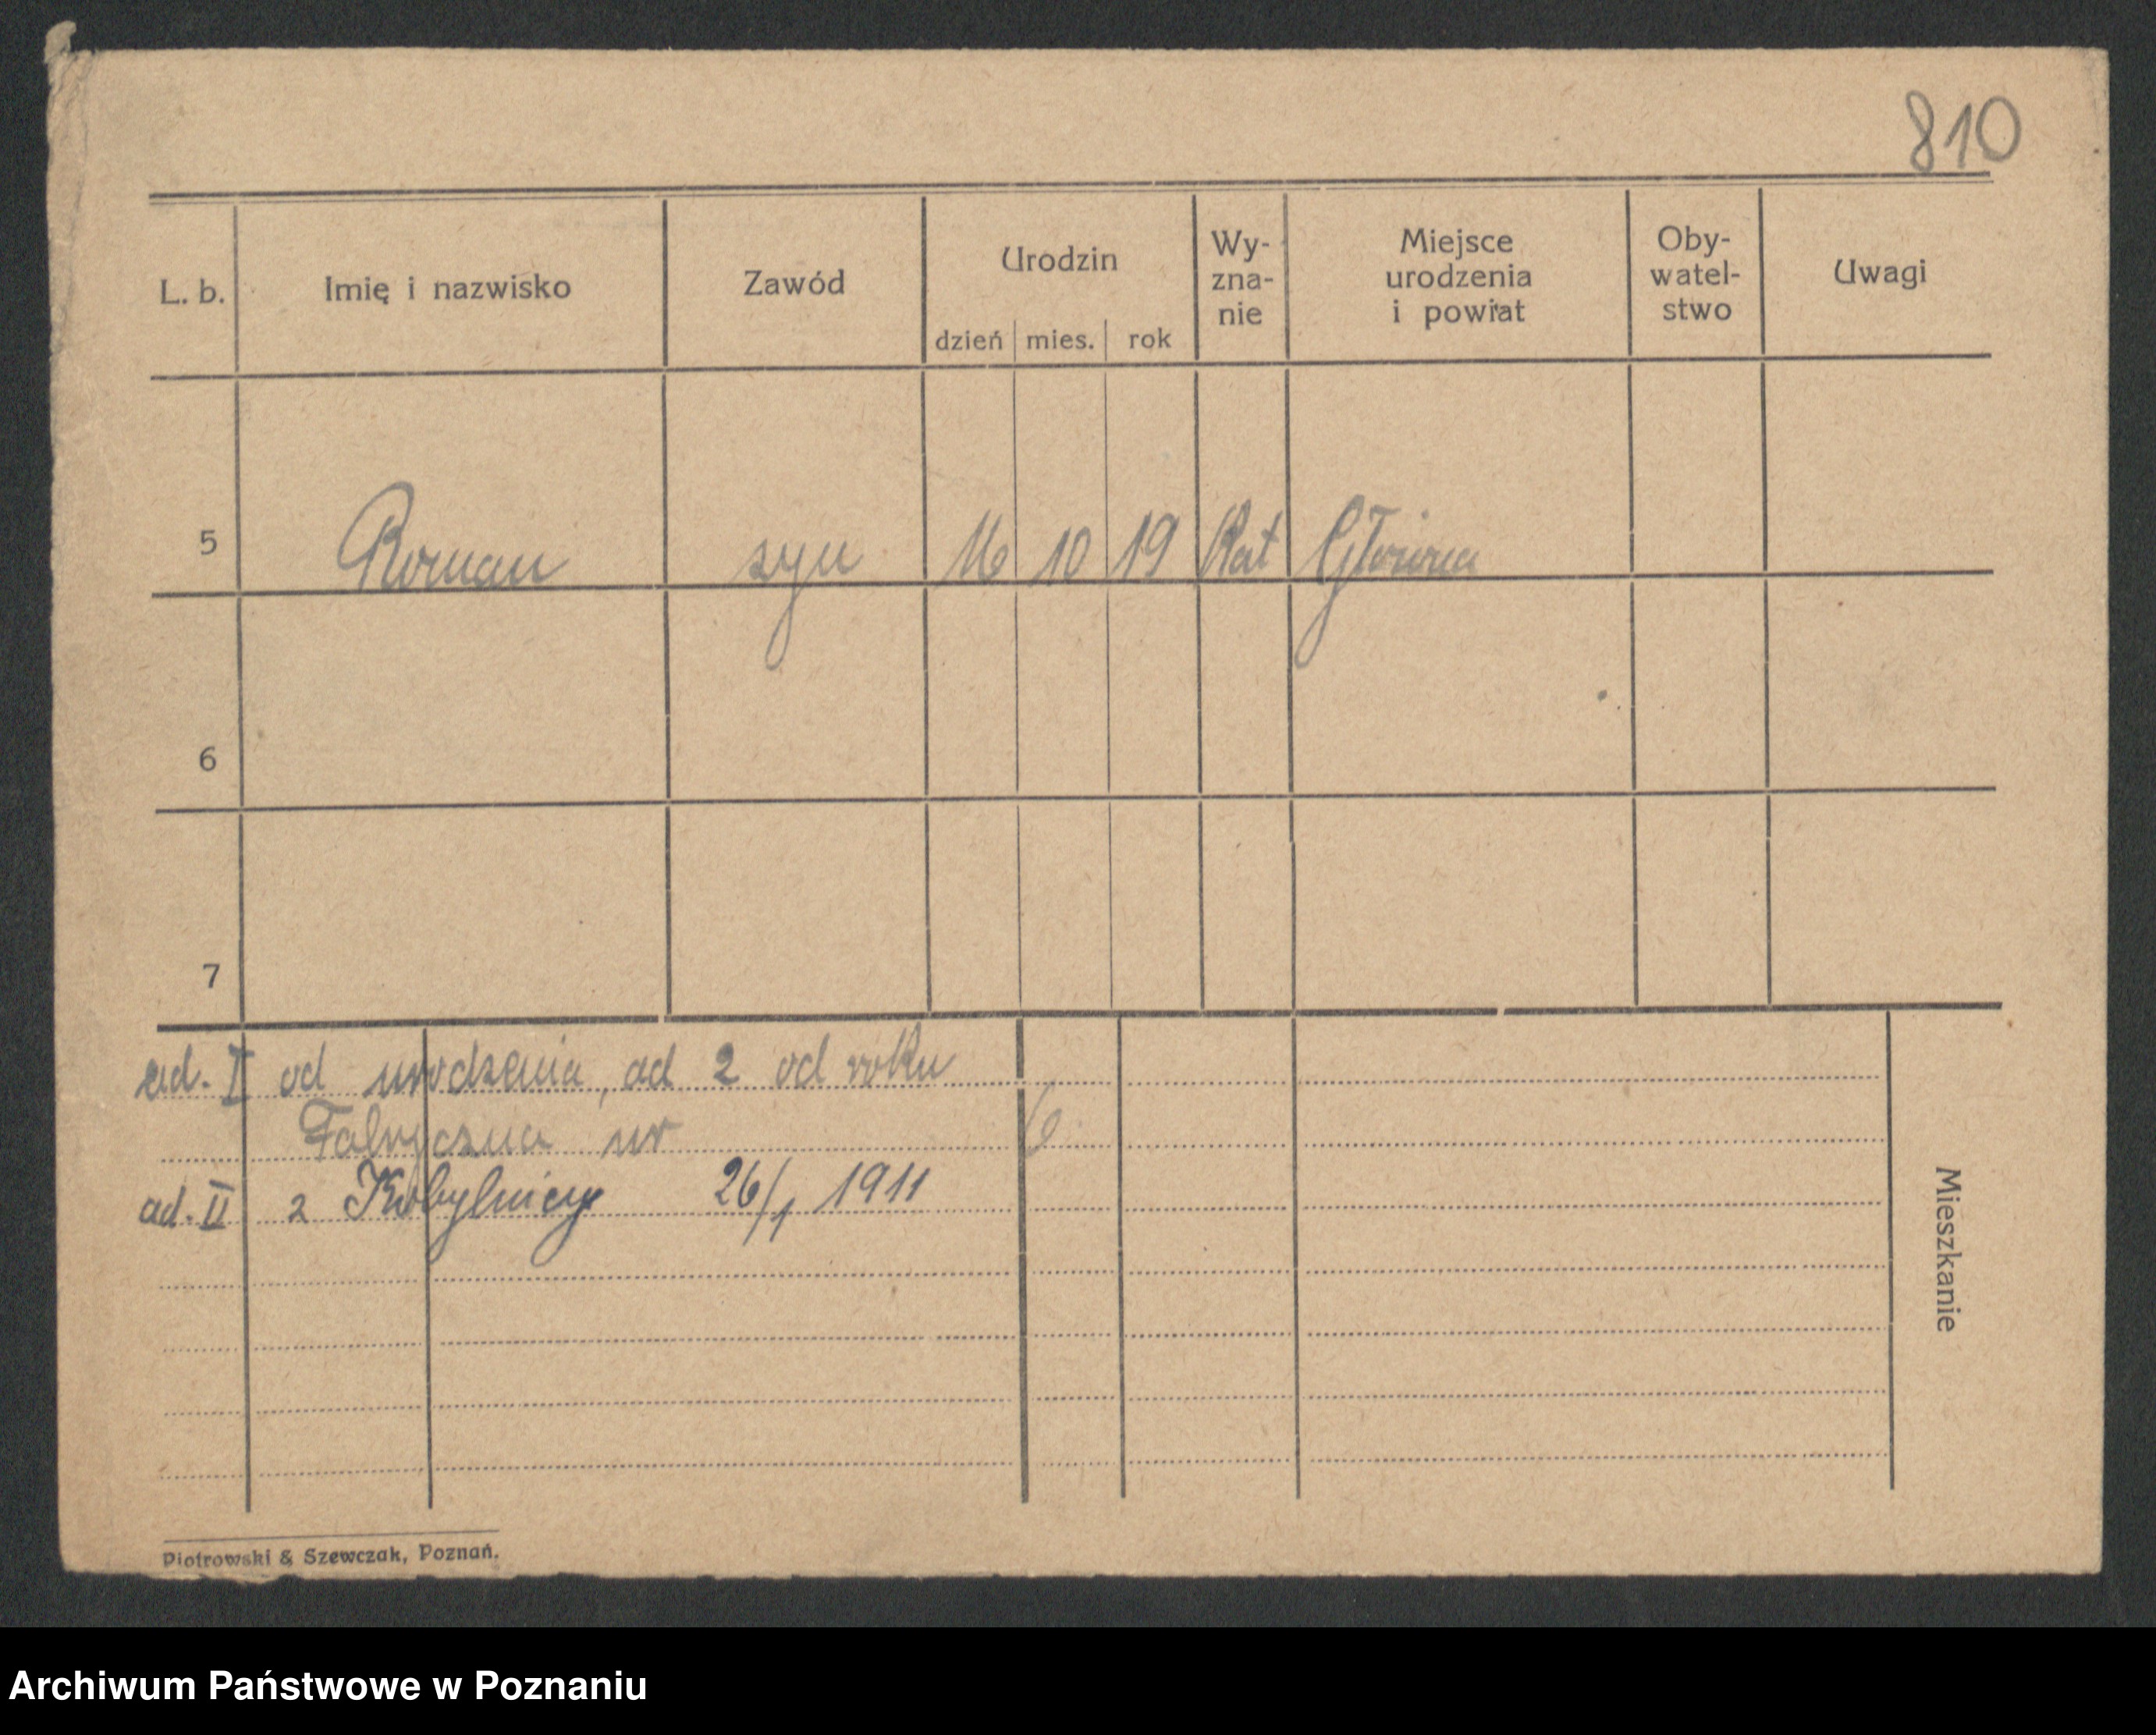 810
L. b. Imię i nazwisko Zawód Urodzin dzień mies. rok Wy-zna-nie Miejsce urodzenia i powiat Oby-watel-stwo Uwagi
5 Roman syn 16 10 19 Kat Główna
6
7
ad. I od urodzenia, ad 2 od roku
Fabryczna nr
ad. II z Kobylnicy 26/1 1911
Mieszkanie
Piotrowski & Szewczak, Poznań.
Archiwum Państwowe w Poznaniu